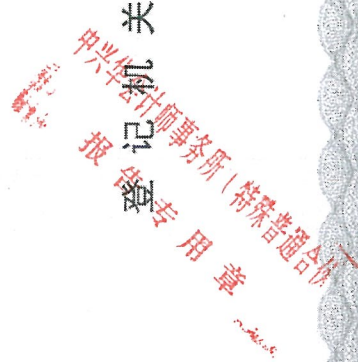 登记机关
中兴华会计师事务所（特殊普通合伙）
报告专用章